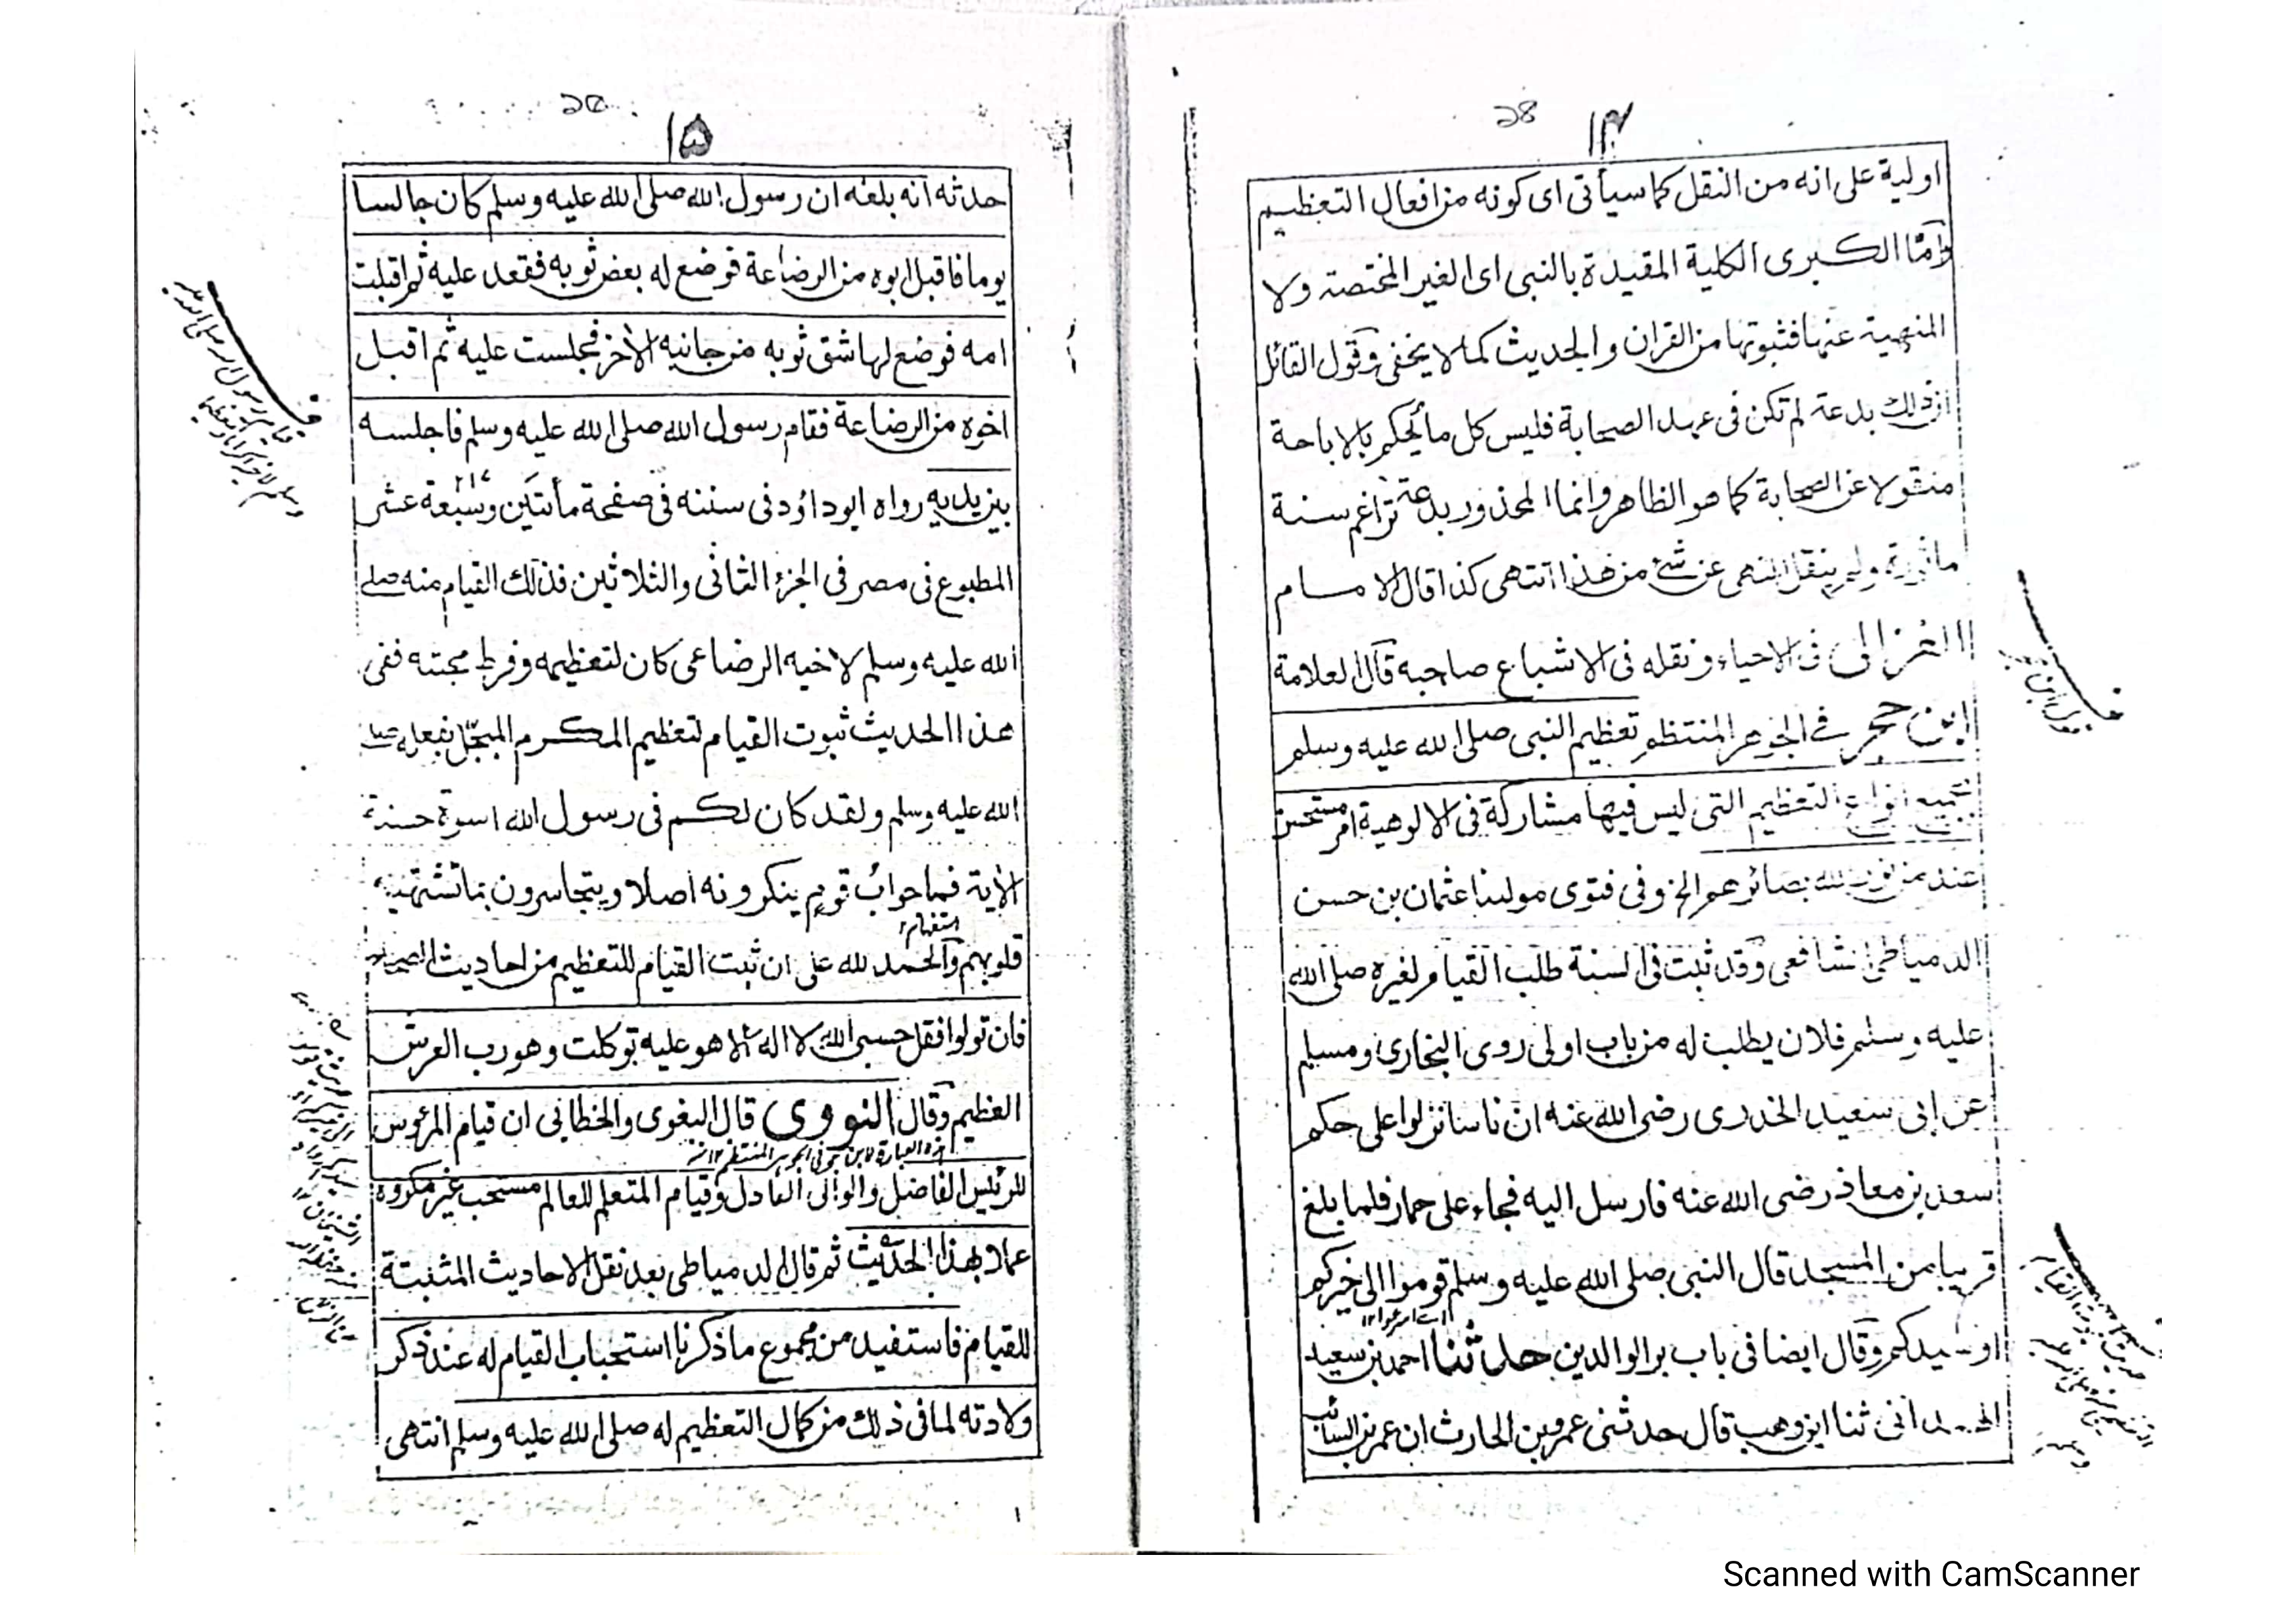 28
۱۴
اولية على انه من النقل كما سيأتى اى كونه من افعال التعظيم
وامّا الكبرى الكلية المقيدة بالنبى اى الغير المختصة ولا
المنهية عنها فثبوتها من القران والحديث كما لا يخفى وقول القائل
ان ذلك بدعة لم تكن فى عهد الصحابة فليس كل ما يحكم بالاباحة
منقولا عن الصحابة كما هو الظاهر وانما المحذور بدعة تراغم سنة
ماثورة ولم ينقل النهى عن شئ من هذا انتهى كذا قال الامام
الغزالى فى الاحياء ونقله فى الاشباع صاحبه قال العلامة
ابن حجر فى الجوهر المنتظم تعظيم النبى صلى الله عليه وسلم
بجميع انواع التعظيم التى ليس فيها مشاركة فى الالوهية امر مستحسن
عند من نور الله بصائرهم الخ وفى فتوى مولينا عثمان بن حسن
الدمياطى الشافعى وقد ثبت فى السنة طلب القيام لغيره صلى الله
عليه وسلم فلان يطلب له من باب اولى روى البخارى ومسلم
عن ابى سعيد الخدرى رضى الله عنه ان ناسا نزلوا على حكم
سعد بن معاذ رضى الله عنه فارسل اليه فجاء على حمار فلما بلغ
قريبا من المسجد قال النبى صلى الله عليه وسلم قوموا الى خيركم
او سيدكم وقال ايضا فى باب بر الوالدين حدثنا احمد بن سعيد
الهمدانى ثنا ابن وهب قال حدثنى عمرو بن الحارث ان عمر بن السائب
۱۵
حدثه انه بلغه ان رسول الله صلى الله عليه وسلم كان جالسا
يوما فاقبل ابوه من الرضاعة فوضع له بعض ثوبه فقعد عليه ثم اقبلت
امه فوضع لها شق ثوبه من جانبه الأخر فجلست عليه ثم اقبل
اخوه من الرضاعة فقام رسول الله صلى الله عليه وسلم فاجلسه
بين يديه رواه ابو داؤد فى سننه فى صفحة مأتين وسبعة عشر
المطبوع فى مصر فى الجزء الثانى والثلاثين فذلك القيام منه صلى
الله عليه وسلم لاخيه الرضاعى كان لتعظيمه وفرط محبته ففى
هذا الحديث ثبوت القيام لتعظيم المكرم المبجّل بفعله صلى
الله عليه وسلم ولقد كان لكم فى رسول الله اسوة حسنة
الأية فما جواب قوم ينكرونه اصلا ويتجاسرون بما تشتهيه
قلوبهم والحمد لله على ان ثبت القيام للتعظيم من احاديث الصحاح
فان تولوا فقل حسبى الله لا اله الا هو عليه توكلت وهو رب العرش
العظيم وقال النووى قال البغوى والخطابى ان قيام المرؤس
للرئيس الفاضل والوالى العادل وقيام المتعلم للعالم مستحب غير مكروه
عملا بهذا الحديث ثم قال الدمياطى بعد نقل الاحاديث المثبتة
للقيام فاستفيد من مجموع ما ذكرنا استحباب القيام له عند ذكر
ولادته لما فى ذلك من كمال التعظيم له صلى الله عليه وسلم انتهى
Scanned with CamScanner